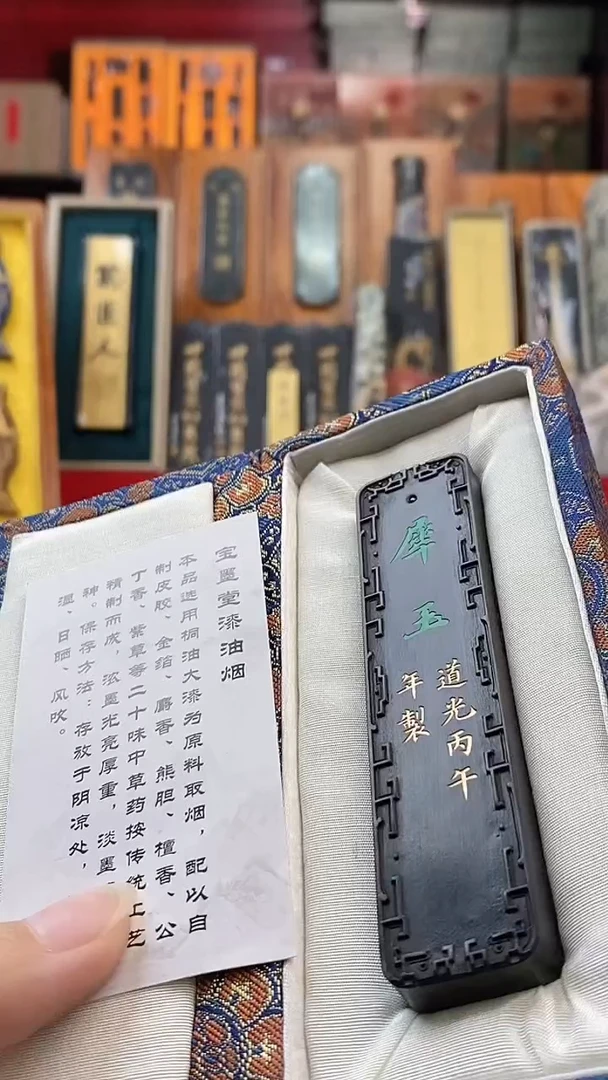 宝墨堂漆油烟
本品选用桐油大漆为原料取烟，配以自
制皮胶、金箔、麝香、熊胆、檀香、公
丁香、紫草等二十味中草药按传统工艺
精制而成，浓墨光亮厚重，淡墨
神。保存方法：存放于阴凉处，
温、日晒、风吹。
犀玉
道光丙午
年製